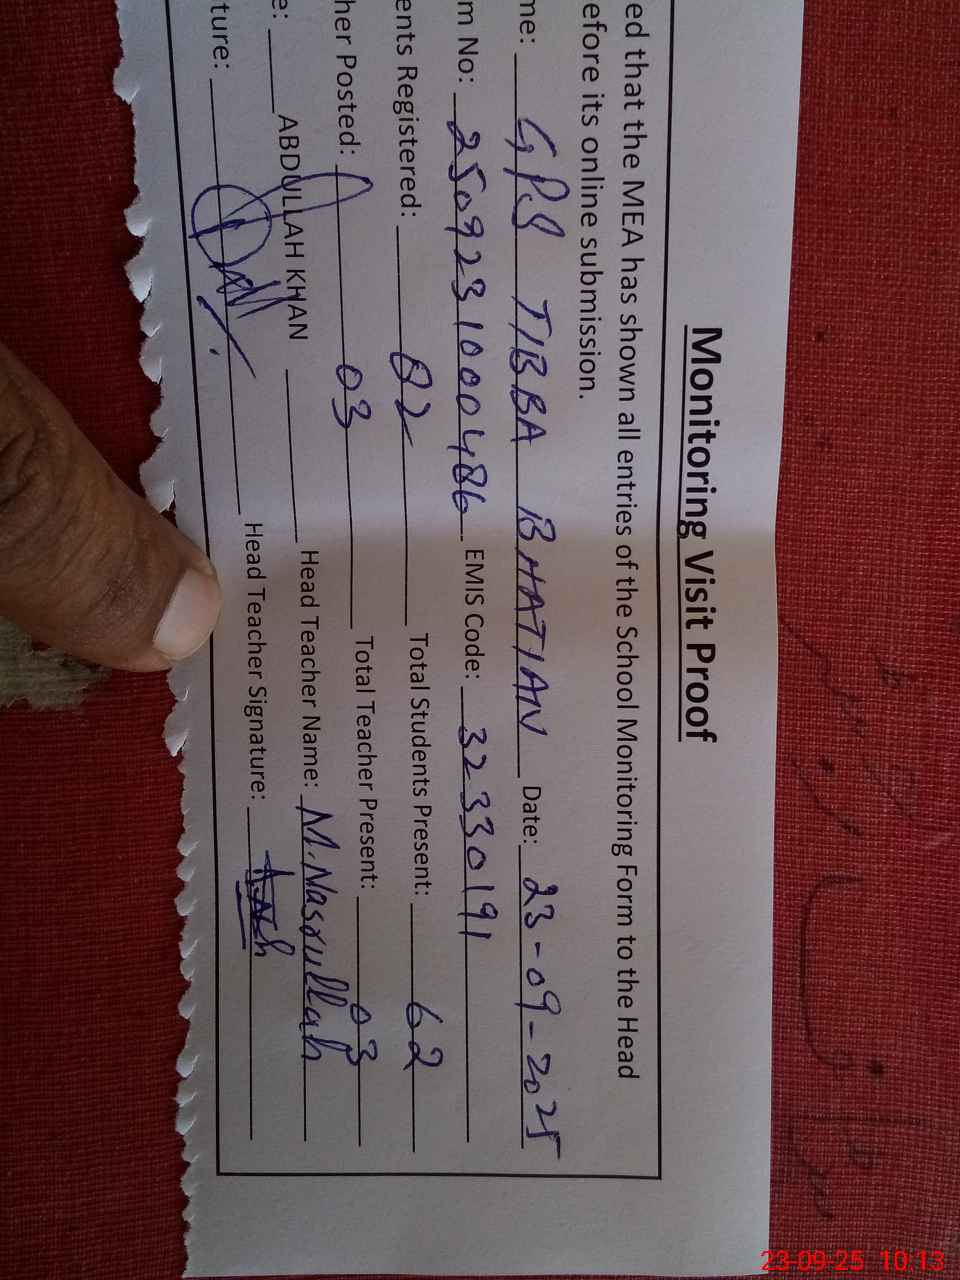 Monitoring Visit Proof
ed that the MEA has shown all entries of the School Monitoring Form to the Head
efore its online submission.
me: GPS TIBBA BHATIAN Date: 23-09-2025
m No: 250923100486 EMIS Code: 32330191
ents Registered: 82 Total Students Present: 62
her Posted: 03 Total Teacher Present: 03
e: ABDULLAH KHAN Head Teacher Name: M. Nasrullah
ture: Head Teacher Signature:
23-09-25 10:13